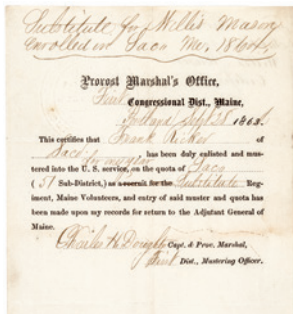 Substitute for Willis Mason
Enrolled in Saco Me. 1864.
Provost Marshal's Office,
First Congressional Dist., Maine,
Portland Sept 28 1864
This certifies that Frank Ricker of
Saco has been duly enlisted and mus-
tered into the U. S. service, on the quota of Saco
( 51 Sub-District,) as a recruit for the Substitute Reg-
iment, Maine Volunteers, and entry of said muster and quota has
been made upon my records for return to the Adjutant General of
Maine.
Charles H. Doughty Capt. & Prov. Marshal,
First Dist., Mustering Officer.